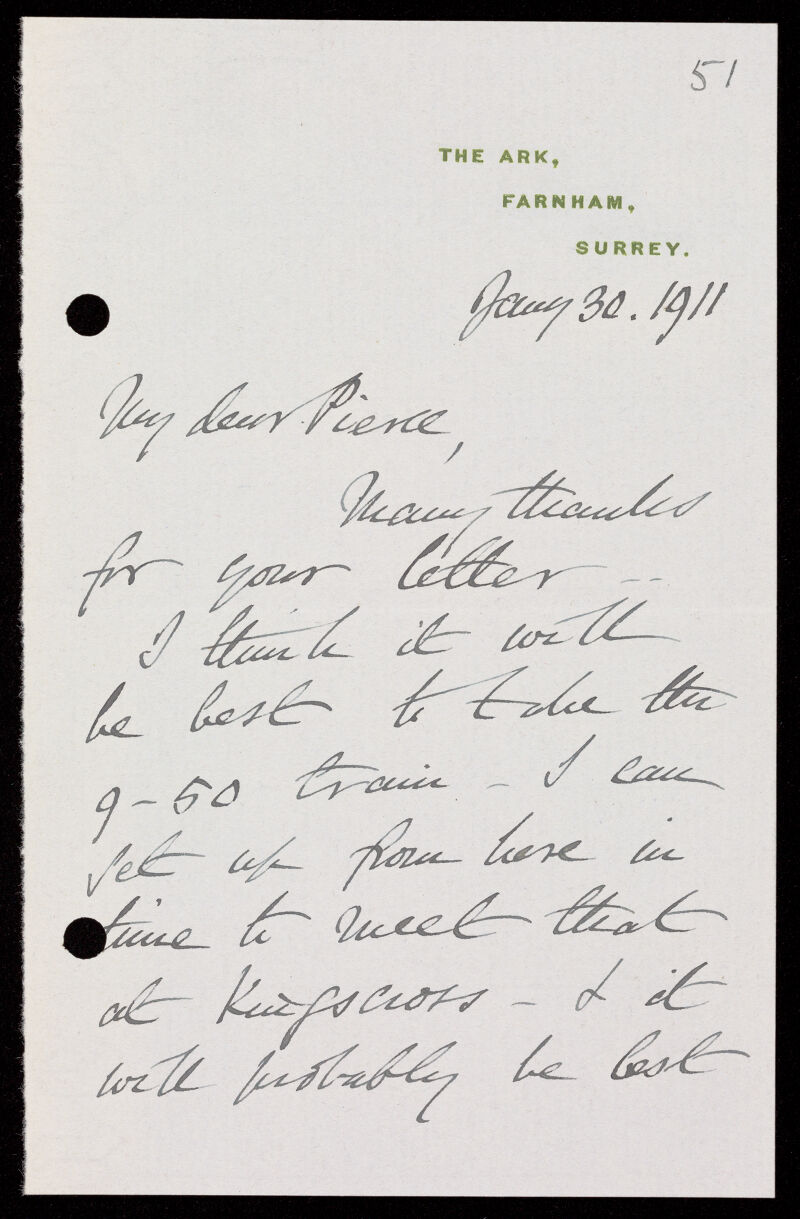 51
THE ARK,
FARNHAM,
SURREY.
Jany 30. 1911
My dear Pierce,
Many thanks
for your letter --
I think it will
be best to take the
9-50 train - I can
get up from here in
time to meet that
at Kingscross - & it
will probably be best